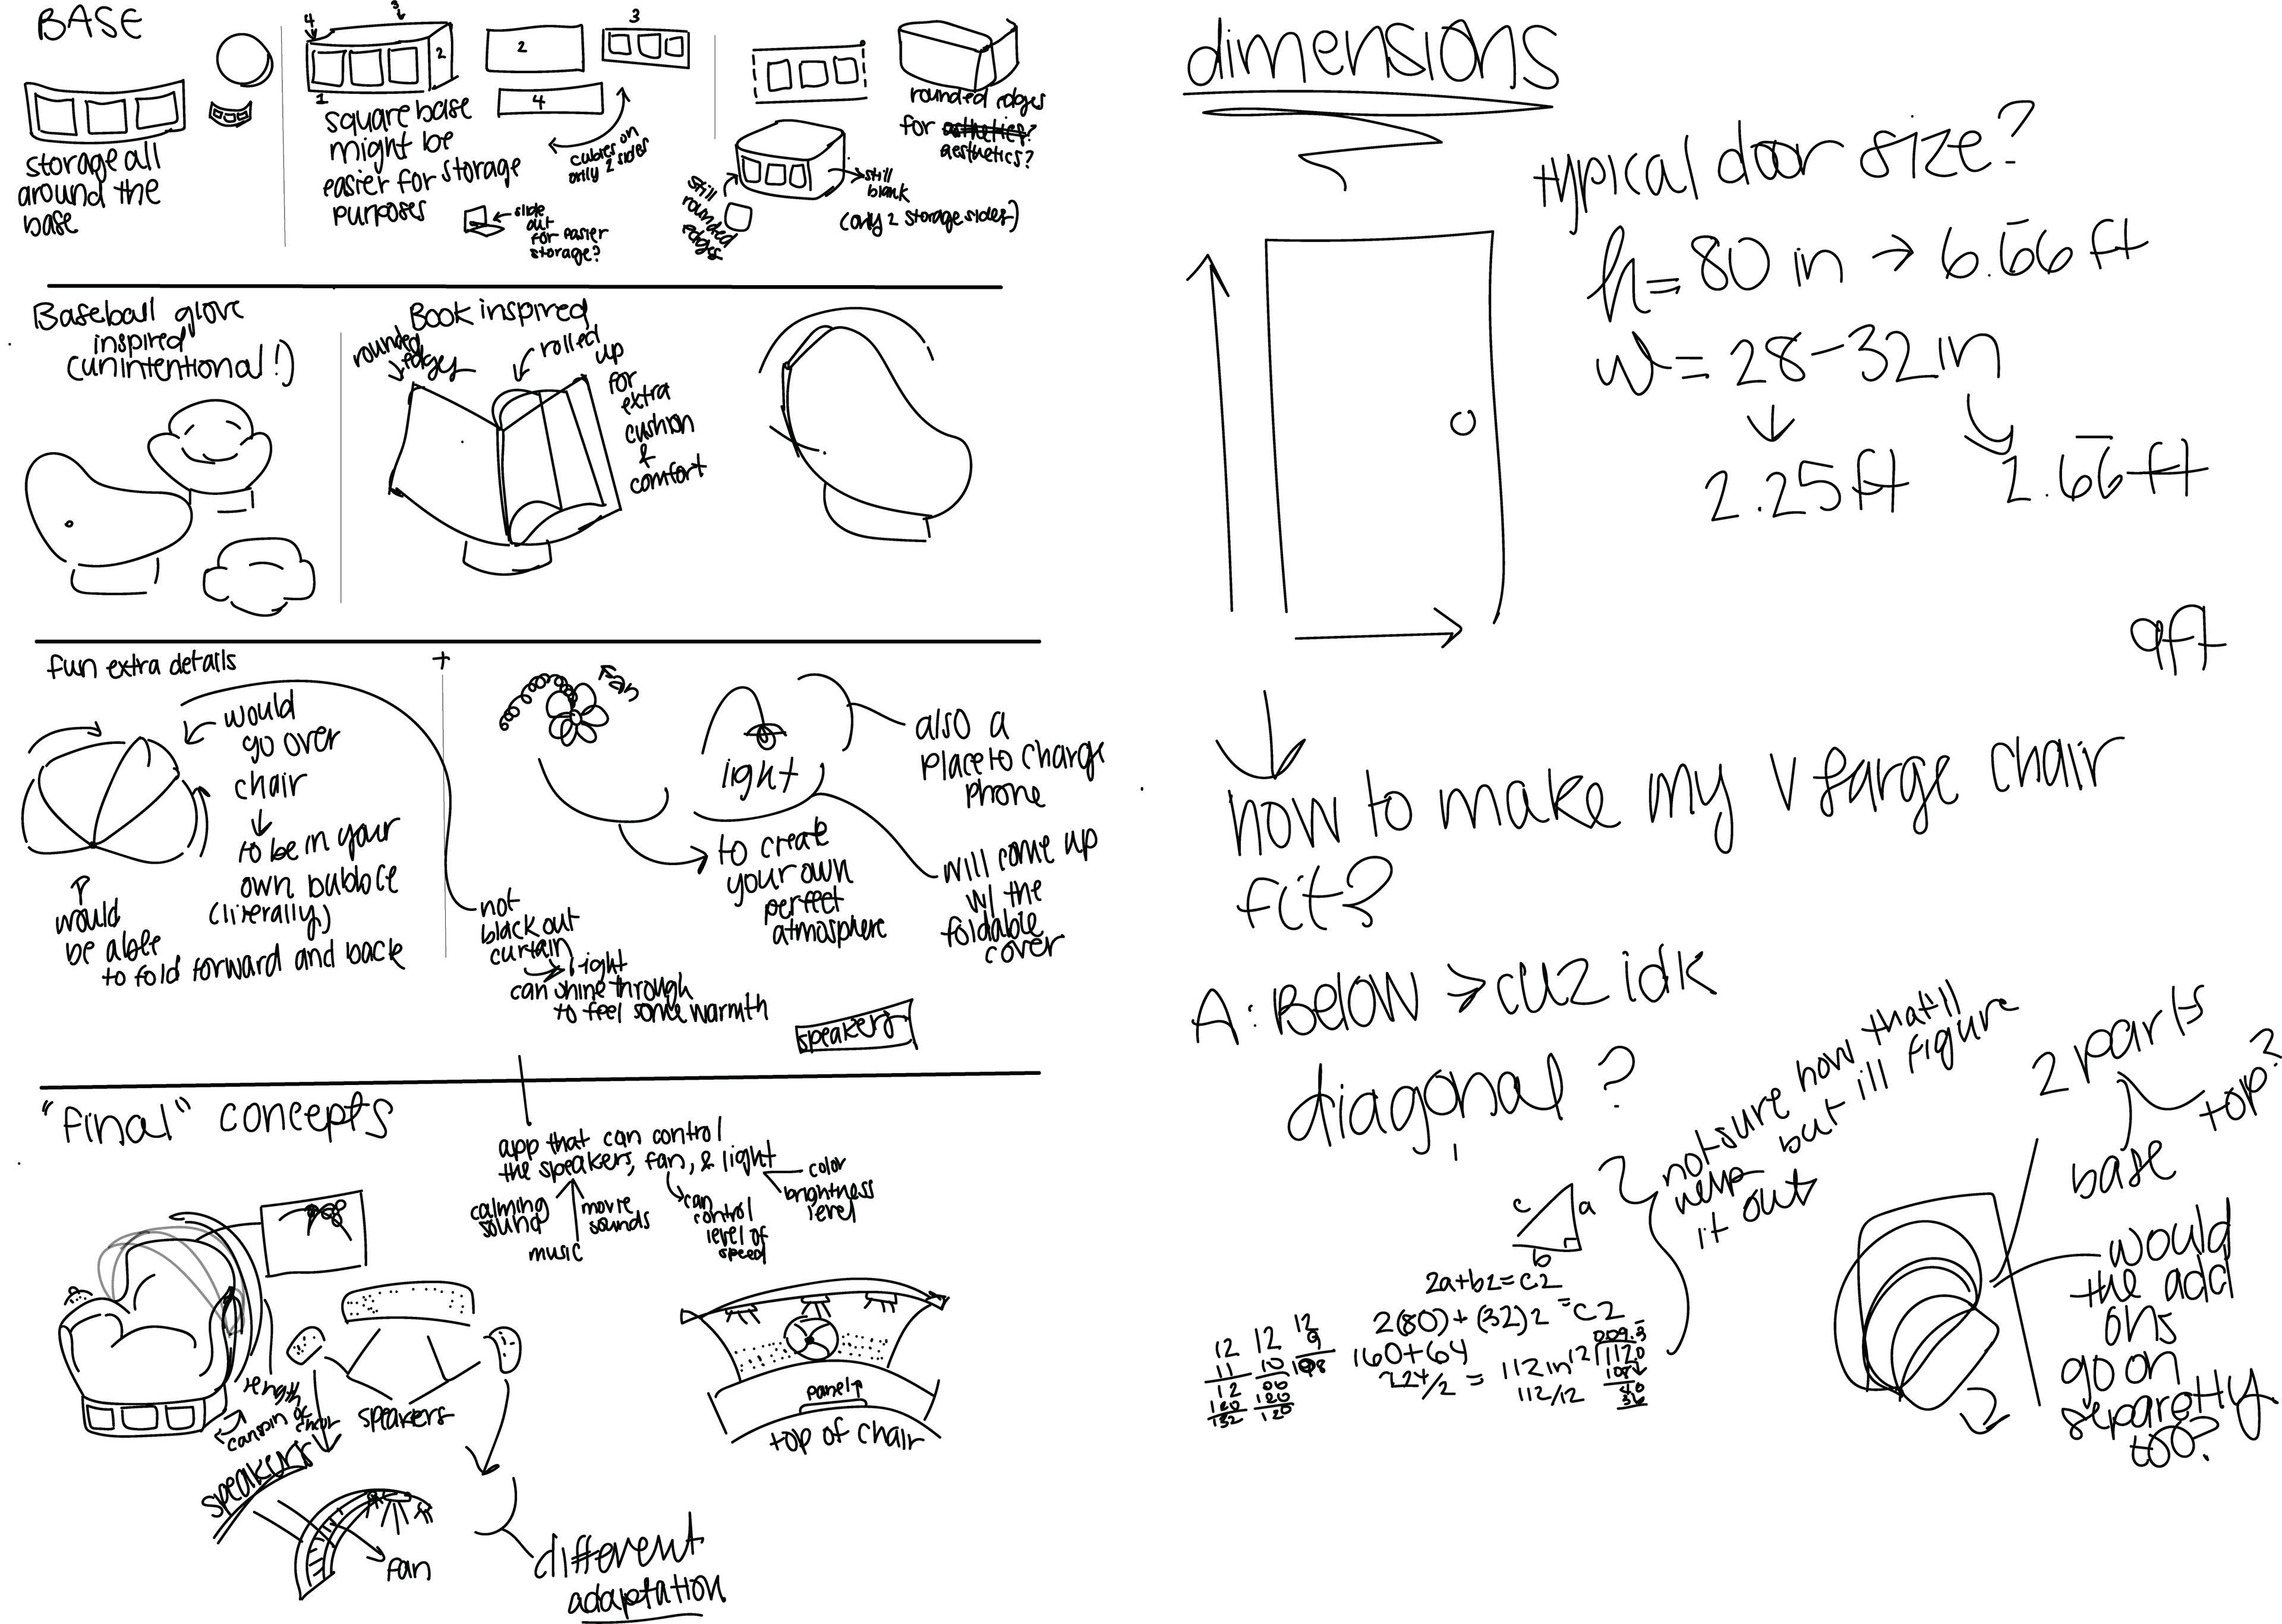 BASE
storage all
around the
base
4
3
1
2
square base
might be
easier for storage
purposes
2
3
4
cubies on
only 2 sides
slide
out
for easier
storage?
rounded edges
for
aesthetics?
still
rounded
edges
still
blank
(only 2 storage sides)
Baseball glove
inspired
(unintentional!)
Book inspired
rounded
edges
rolled
up
for
extra
cushion
&
comfort
fun extra details
would
go over
chair
to be in your
own bubble
(literally)
would
be able
to fold forward and back
not
black out
curtain
light
can shine through
to feel some warmth
fan
light
also a
place to charge
phone
to create
your own
perfect
atmosphere
will come up
w/ the
foldable
cover
speakers
"final" concepts
app that can control
the speakers, fan, & light
calming
sound
music
movie
sounds
can
control
level of
speed
color
brightness
level
length
of chair
can spin
speakers
speakers
fan
different
adaptation
panel
top of chair
dimensions
typical door size?
h = 80 in → 6.66 ft
w = 28-32 in
2.25 ft
2.66 ft
9ft
how to make my v large chair
fit?
A: Below → cuz idk
diagonal?
not sure how that'll
help but ill figure
it out
c
a
b
2a+b2=c2
2(80)+(32)2=c2
160+64
224/2 = 112 in
112/12
12
11
12
120
132
12
10
00
120
120
12
9
108
009.3
12 112.0
108
40
36
2 parts
top?
base
would
the add
ons
go on
separetly
too?